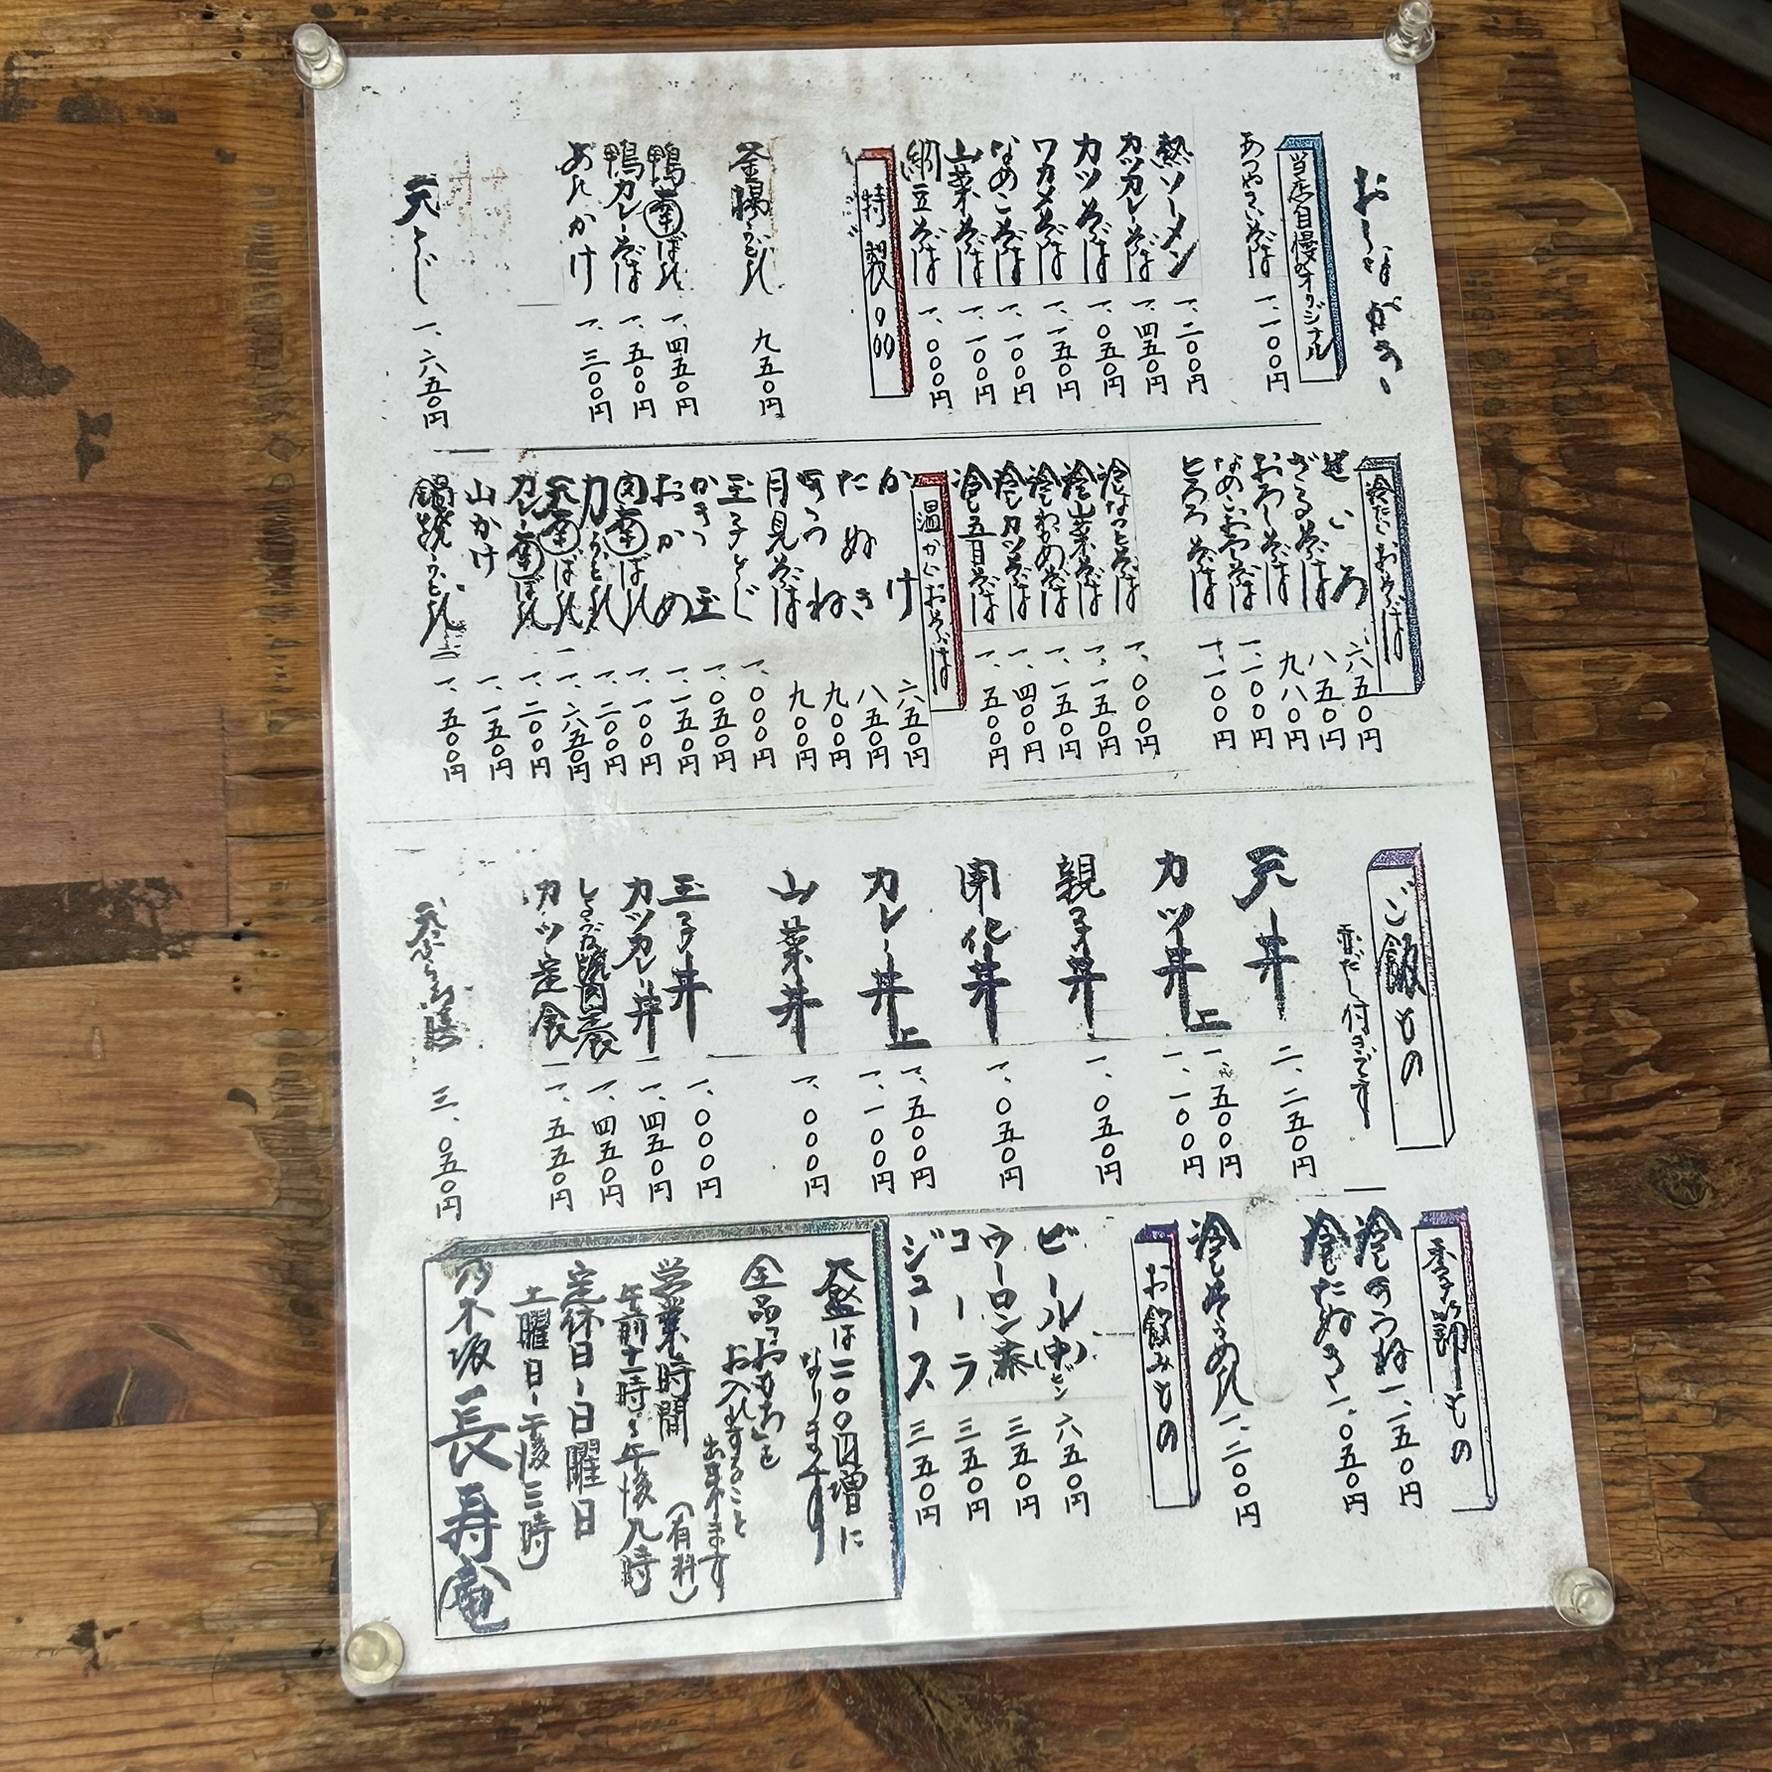 おしながき
当店自慢のオリジナル
あつやさいそば 一、一〇〇円
熱ソーメン 一、二〇〇円
カツカレーそば 一、四五〇円
カツそば 一、〇五〇円
ワカメそば 一、一五〇円
なめこそば 一、一〇〇円
山菜そば 一、一〇〇円
納豆そば 一、〇〇〇円
特製の
釜揚うどん 九五〇円
鴨南ばん 一、四五〇円
鴨カレーそば 一、五〇〇円
あんかけ 一、三〇〇円
天とじ 一、六五〇円
冷たいおそば
せいろ 六五〇円
ざるそば 八五〇円
おろしそば 九八〇円
なめこおろしそば 一、一〇〇円
とろろそば 一、一〇〇円
冷しなっとそば 一、〇〇〇円
冷し山菜そば 一、一五〇円
冷しわかめそば 一、一五〇円
冷しカツそば 一、四〇〇円
冷し五目そば 一、五〇〇円
温かいおそば
かけ 六五〇円
たぬき 八五〇円
きつね 九〇〇円
月見そば 九〇〇円
玉子とじ 一、〇〇〇円
かき玉 一、〇五〇円
おかめ 一、一五〇円
肉南ばん 一、一〇〇円
力うどん 一、二〇〇円
天南ばん 一、六五〇円
カレー南ばん 一、二〇〇円
山かけ 一、一五〇円
鍋焼うどん 一、五〇〇円
ご飯もの
付きです
天丼 二、二五〇円
カツ丼 一、一〇〇円
上 一、五〇〇円
親子丼 一、〇五〇円
開化丼 一、〇五〇円
カレー丼 一、一〇〇円
上 一、五〇〇円
山菜丼 一、〇〇〇円
玉子丼 一、〇〇〇円
カツカレー丼 一、四五〇円
焼肉定食 一、四五〇円
カツ定食 一、五五〇円
天ぷら御膳 三、〇五〇円
季節もの
冷しきつね 一、一五〇円
冷したぬき 一、〇五〇円
冷しそうめん 一、二〇〇円
お飲みもの
ビール(中)ビン 六五〇円
ウーロン茶 三五〇円
コーラ 三五〇円
ジュース 三五〇円
大盛は二〇〇円増に
なります
全品「おもち」を
お入れすること
出来ます
(有料)
営業時間
午前十一時〜午後八時
定休日〜日曜日
土曜日〜午後三時
乃木坂 長寿庵